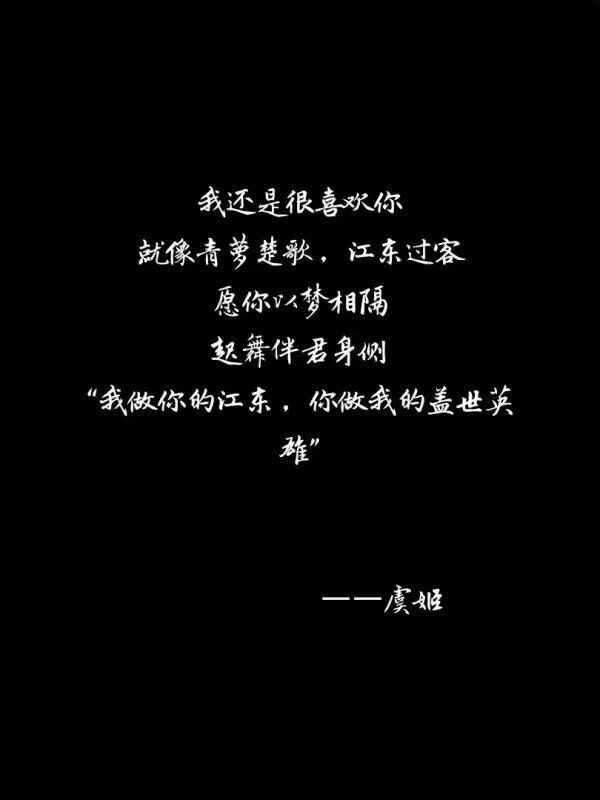 我还是很喜欢你
就像青萝楚歌，江东过客
愿你以梦相隔
起舞伴君身侧
“我做你的江东，你做我的盖世英
雄”
——虞姬